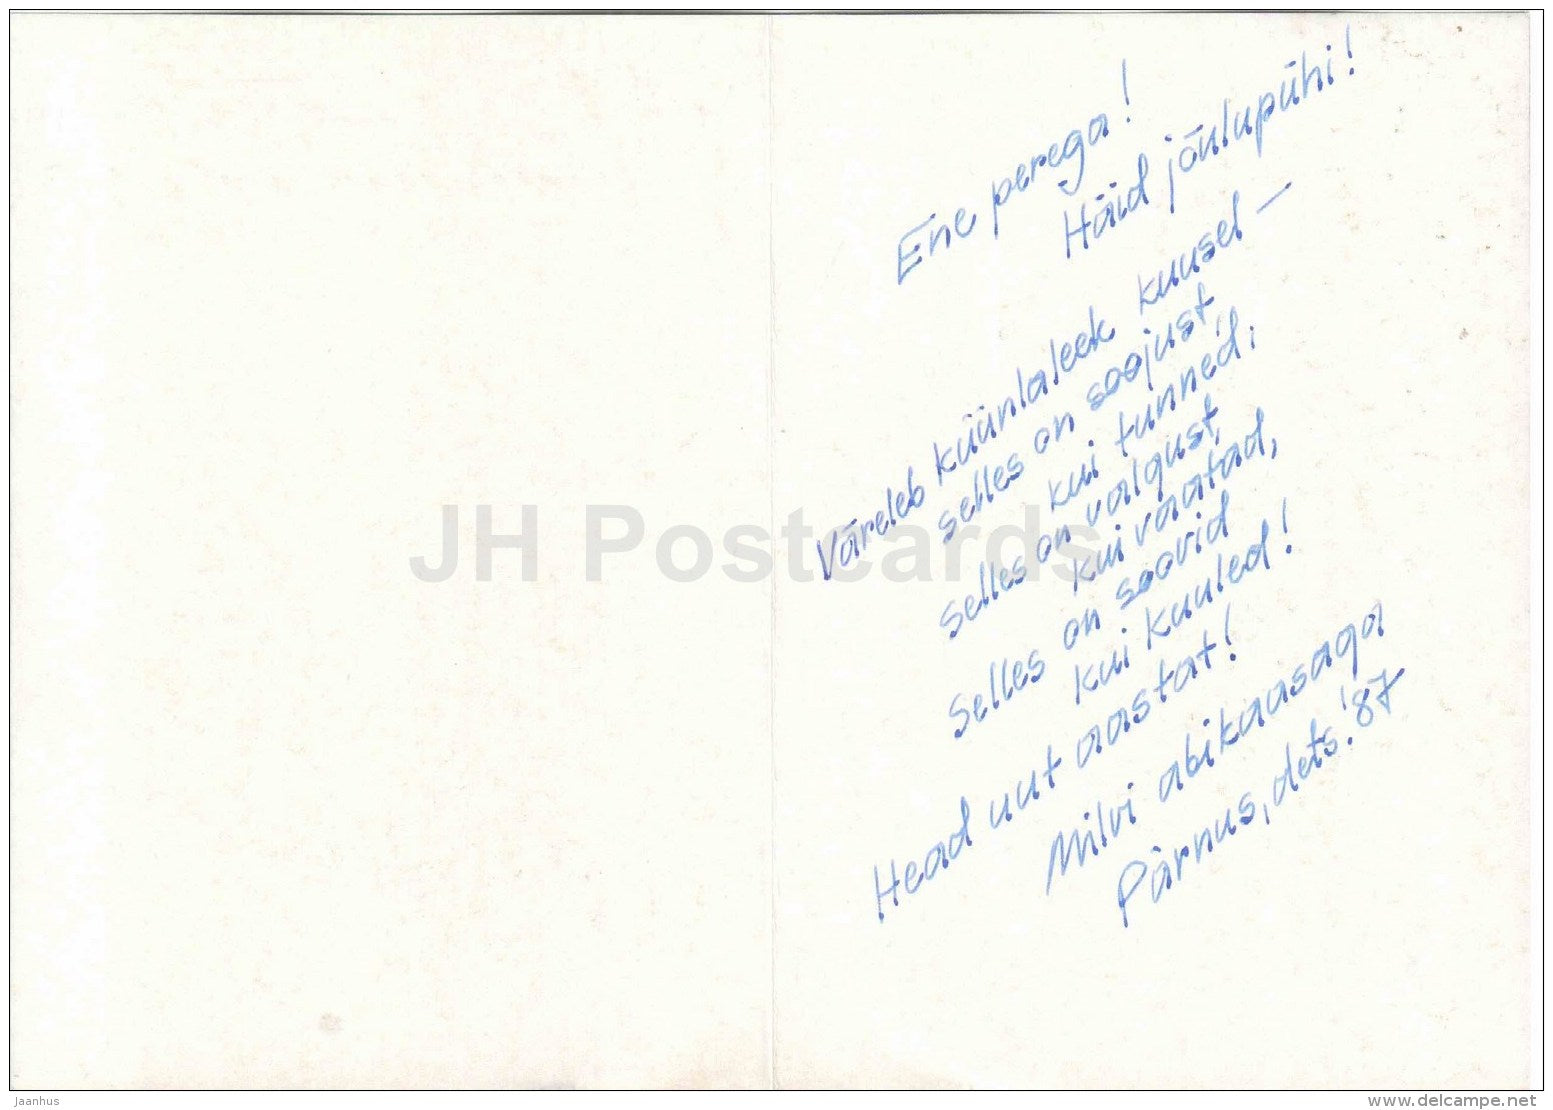 Ene perega!
Häid jõulupühi!
Väreleb küünlaleek kuusel –
selles on soojust
kui tunned;
selles on valgust,
kui vaatad,
selles on soovid
kui kuuled!
Head uut aastat!
Milvi abikaasaga
Pärnus, dets. '87
JH Postcards
Jaanhus
www.delcampe.net